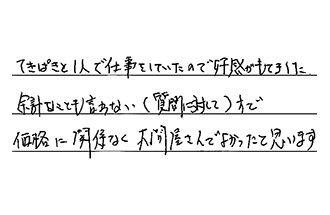 てきぱきと1人で仕事をしていたので好感がもてました
余計なことも言わない(質問に対して)すで
価格に関係なく 大間屋さんでよかったと思います